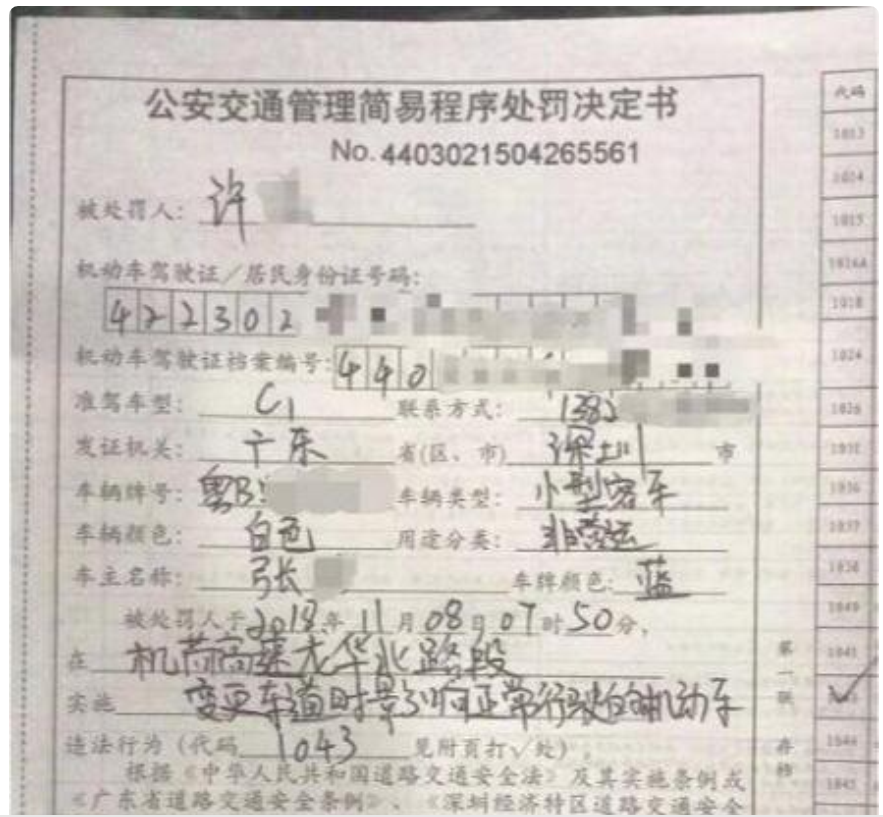 公安交通管理简易程序处罚决定书
No. 4403021504265561
被处罚人: 许
机动车驾驶证/居民身份证号码:
422302
机动车驾驶证档案编号: 440
准驾车型: C1 联系方式: 138
发证机关: 广东 省(区、市) 深圳 市
车辆牌号: 粤B 车辆类型: 小型客车
车辆颜色: 白色 用途分类: 非营运
车主名称: 张 车牌颜色: 蓝
被处罚人于2018年11月08日07时50分,
在 机荷高速龙华北路段
实施 变更车道时影响正常行驶的机动车
违法行为(代码 1043 见附页打√处),
根据《中华人民共和国道路交通安全法》及其实施条例或
《广东省道路交通安全条例》、《深圳经济特区道路交通安全
第一联 存档
代码
1013
1014
1015
1016A
1018
1024
1026
1035
1036
1037
1038
1040
1041
1044
1045